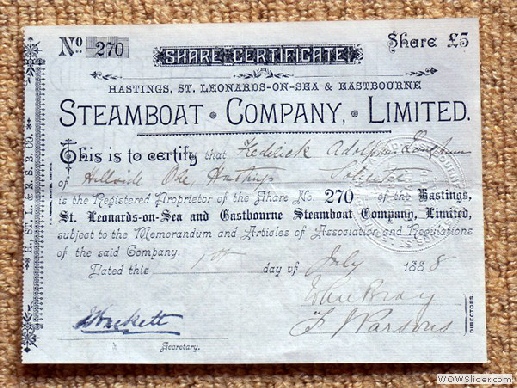 No. 270
SHARE CERTIFICATE
Share £5
HASTINGS, ST. LEONARDS-ON-SEA & EASTBOURNE
STEAMBOAT · COMPANY, · LIMITED.
This is to certify that Frederick Adolphus Langham
of Hillside Ore Hastings Solicitor
is the Registered Proprietor of the Share No 270 of the Hastings,
St. Leonards-on-Sea and Eastbourne Steamboat Company, Limited,
subject to the Memorandum and Articles of Association and Regulations
of the said Company.
Dated this day of July 1888
Bray
F J Parsons
DIRECTORS
Secretary.
H. ST. L. & E. S. B. CO.
www.WOWSlider.com